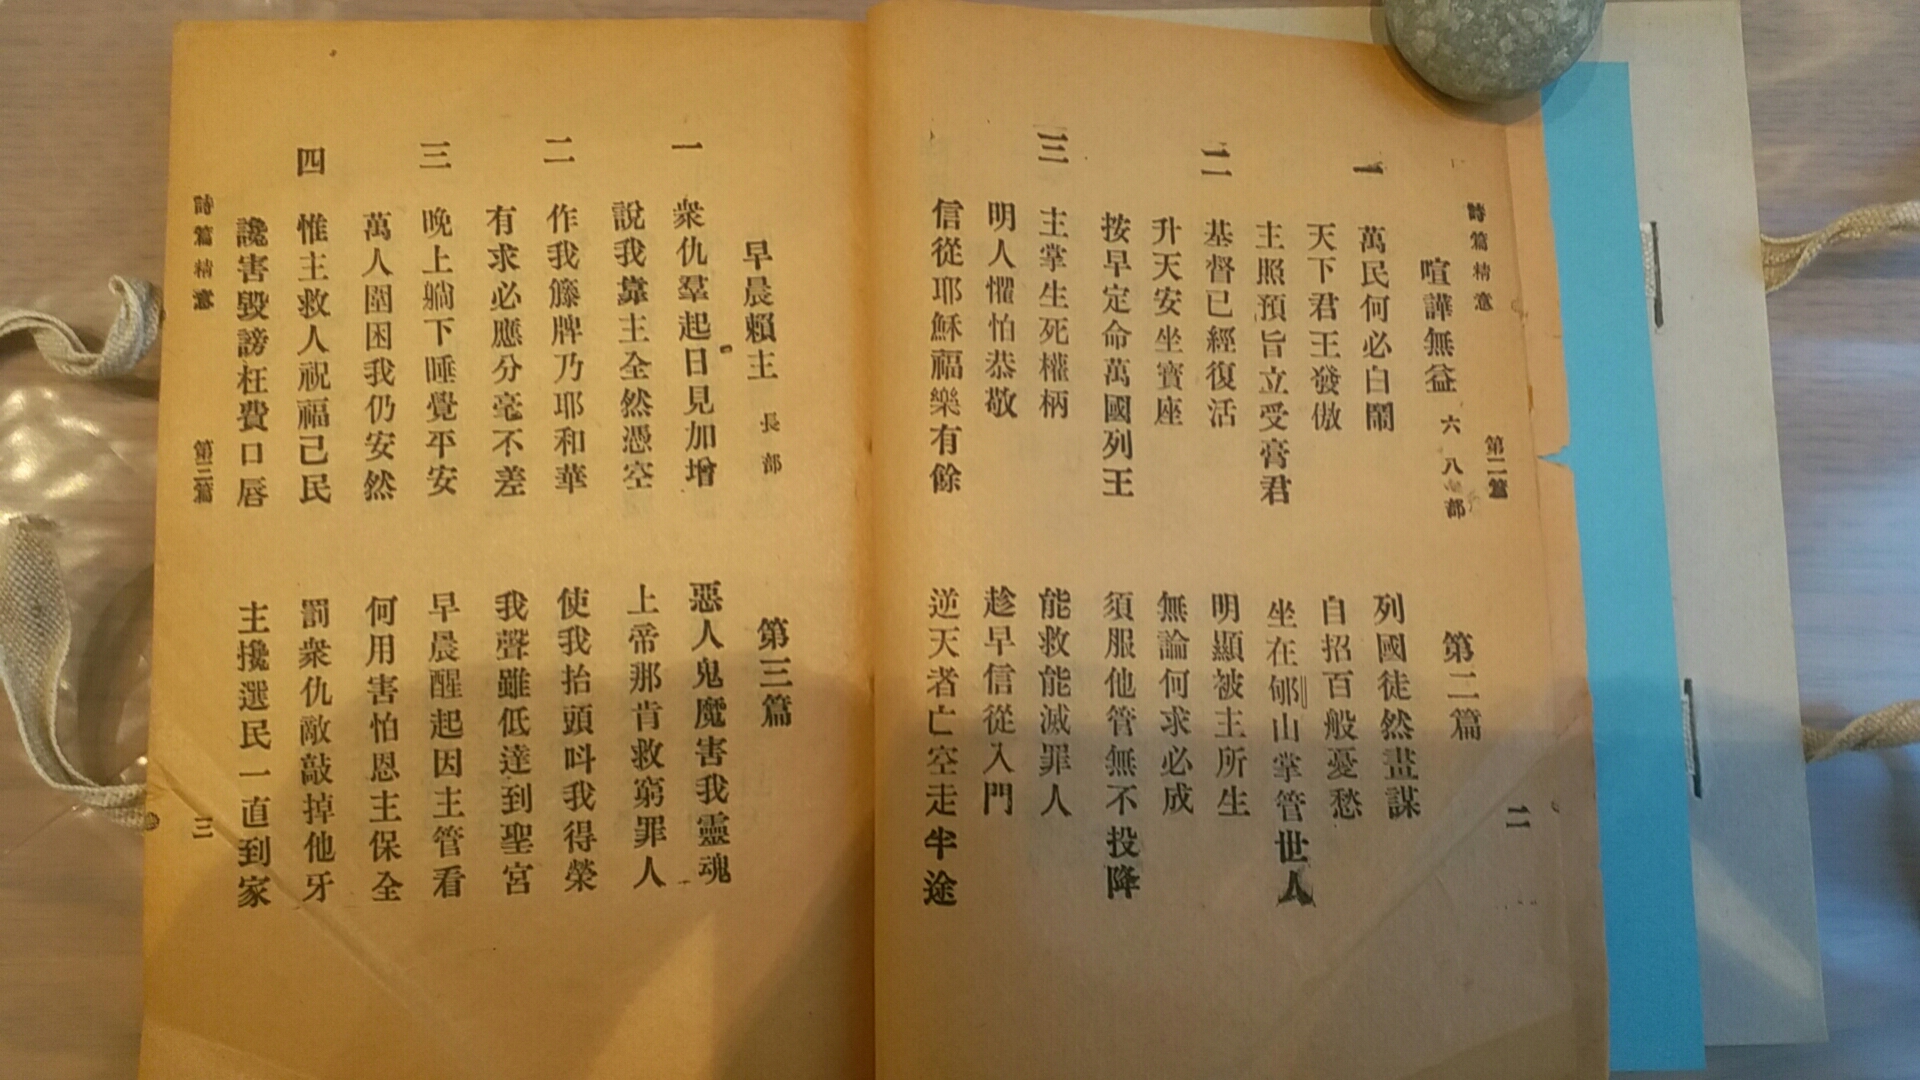 詩篇精意 第二篇 二
喧譁無益 六八部 第二篇
一 萬民何必白鬧 列國徒然畫謀
天下君王發傲 自招百般憂愁
主照預旨立受膏君 坐在郇山掌管世人
二 基督已經復活 明顯被主所生
升天安坐寶座 無論何求必成
按早定命萬國列王 須服他管無不投降
三 主掌生死權柄 能救能滅罪人
明人懼怕恭敬 趁早信從入門
信從耶穌福樂有餘 逆天者亡空走半途
早晨賴主 長部 第三篇
一 衆仇羣起日見加增 惡人鬼魔害我靈魂
說我靠主全然憑空 上帝那肯救窮罪人
二 作我籐牌乃耶和華 使我抬頭呌我得榮
有求必應分毫不差 我聲雖低達到聖宮
三 晚上躺下睡覺平安 早晨醒起因主管看
萬人圍困我仍安然 何用害怕恩主保全
四 惟主救人祝福己民 罰衆仇敵敲掉他牙
讒害毀謗枉費口唇 主攙選民一直到家
詩篇精意 第三篇 三